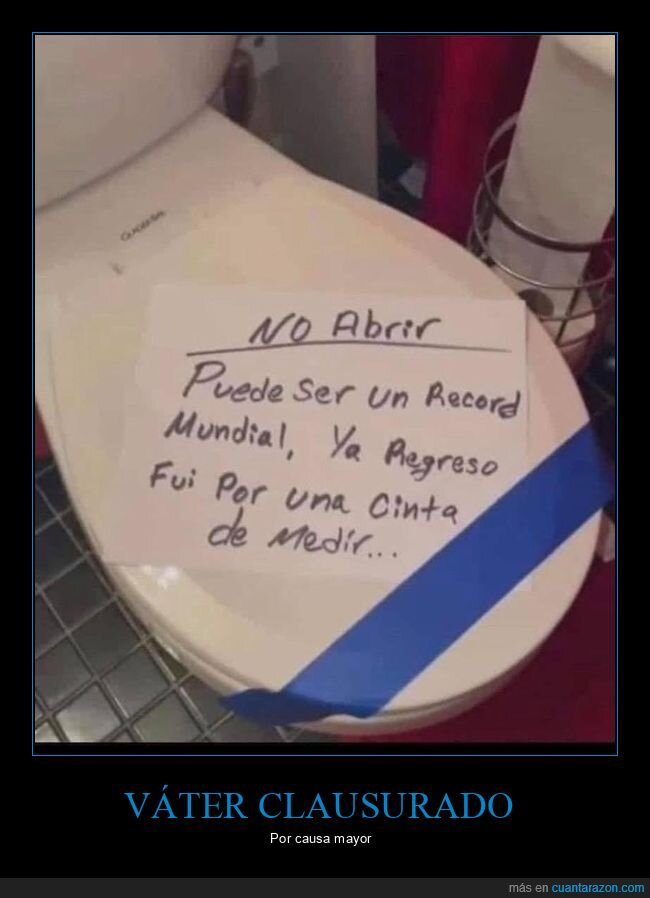 No Abrir
Puede Ser un Record
Mundial, Ya Regreso
Fui Por una Cinta
de Medir...
VÁTER CLAUSURADO
Por causa mayor
más en cuantarazon.com